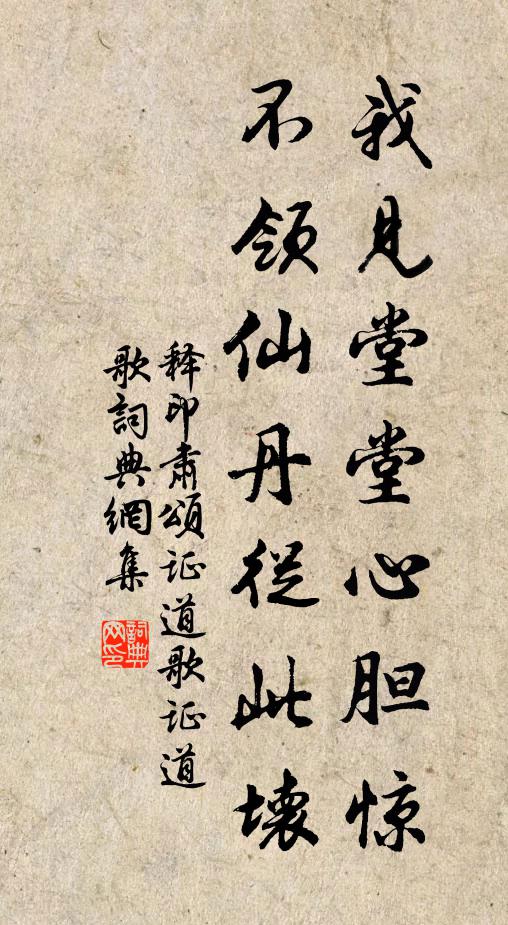 我见堂堂心胆惊
不领仙丹从此壞
释印肃頌证道歌证道
歌詞典網集
詞典
网印